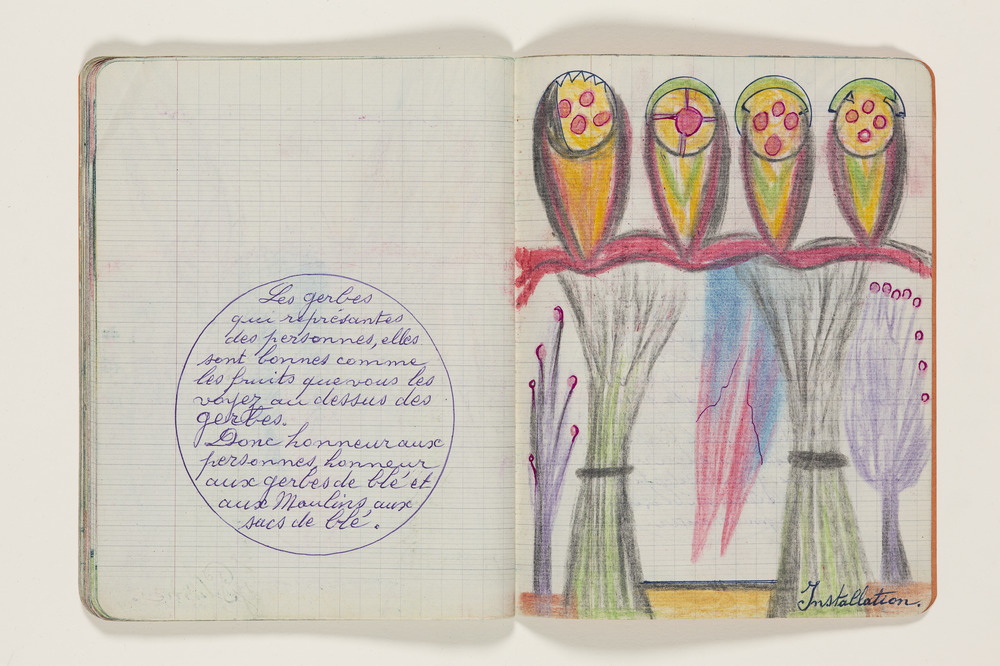 Les gerbes
qui représantes
des personnes, elles
sont bonnes comme
les fruits que vous les
voyez au dessus des
gerbes.
Donc honneur aux
personnes, honneur
aux gerbes de blé et
aux Moulins aux
sacs de blé.
Installation.